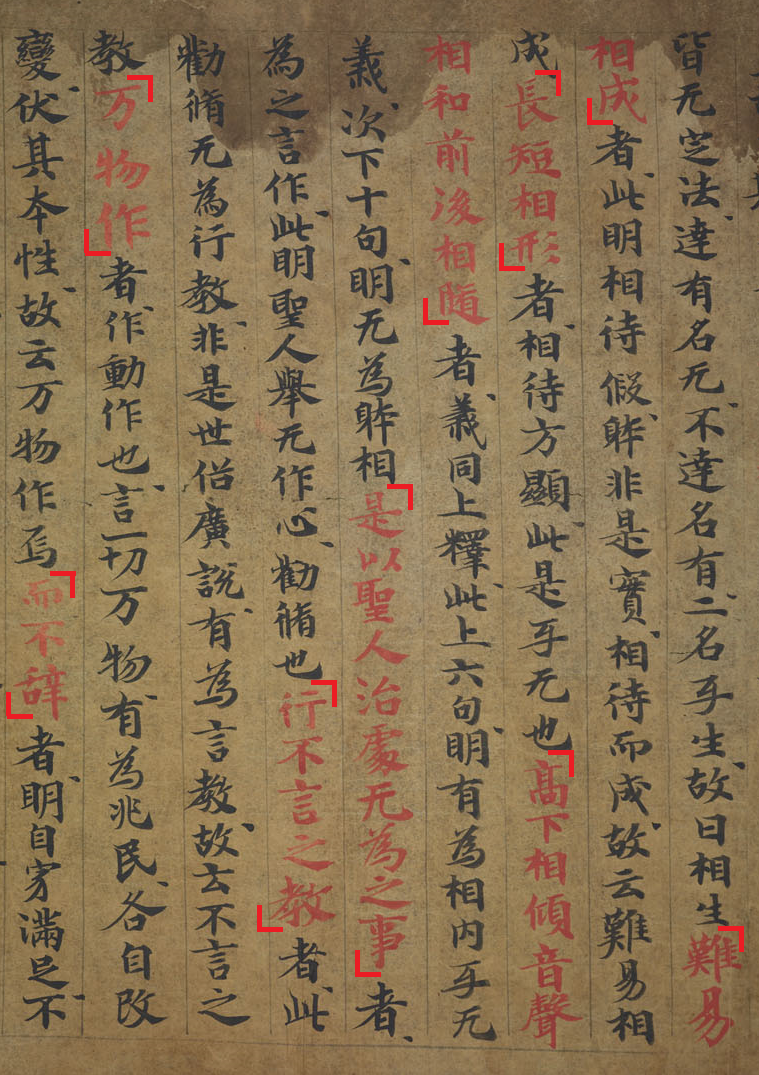 皆无定法達有名无不達名有二名互生故曰相生難易
相成者此明相待假躰非是實相待而成故云難易相
成長短相形者相待方顯此是互无也高下相傾音聲
相和前後相隨者義同上釋此上六句明有為相内互无
義次下十句明无為躰相是以聖人治處无為之事者
為之言作此明聖人舉无作心勸脩也行不言之教者此
勸脩无為行教非是世俗廣說有為言教故云不言之
教万物作者作動作也言一切万物有為兆民各自改
變伏其本性故云万物作焉而不辞者明自守滿足不